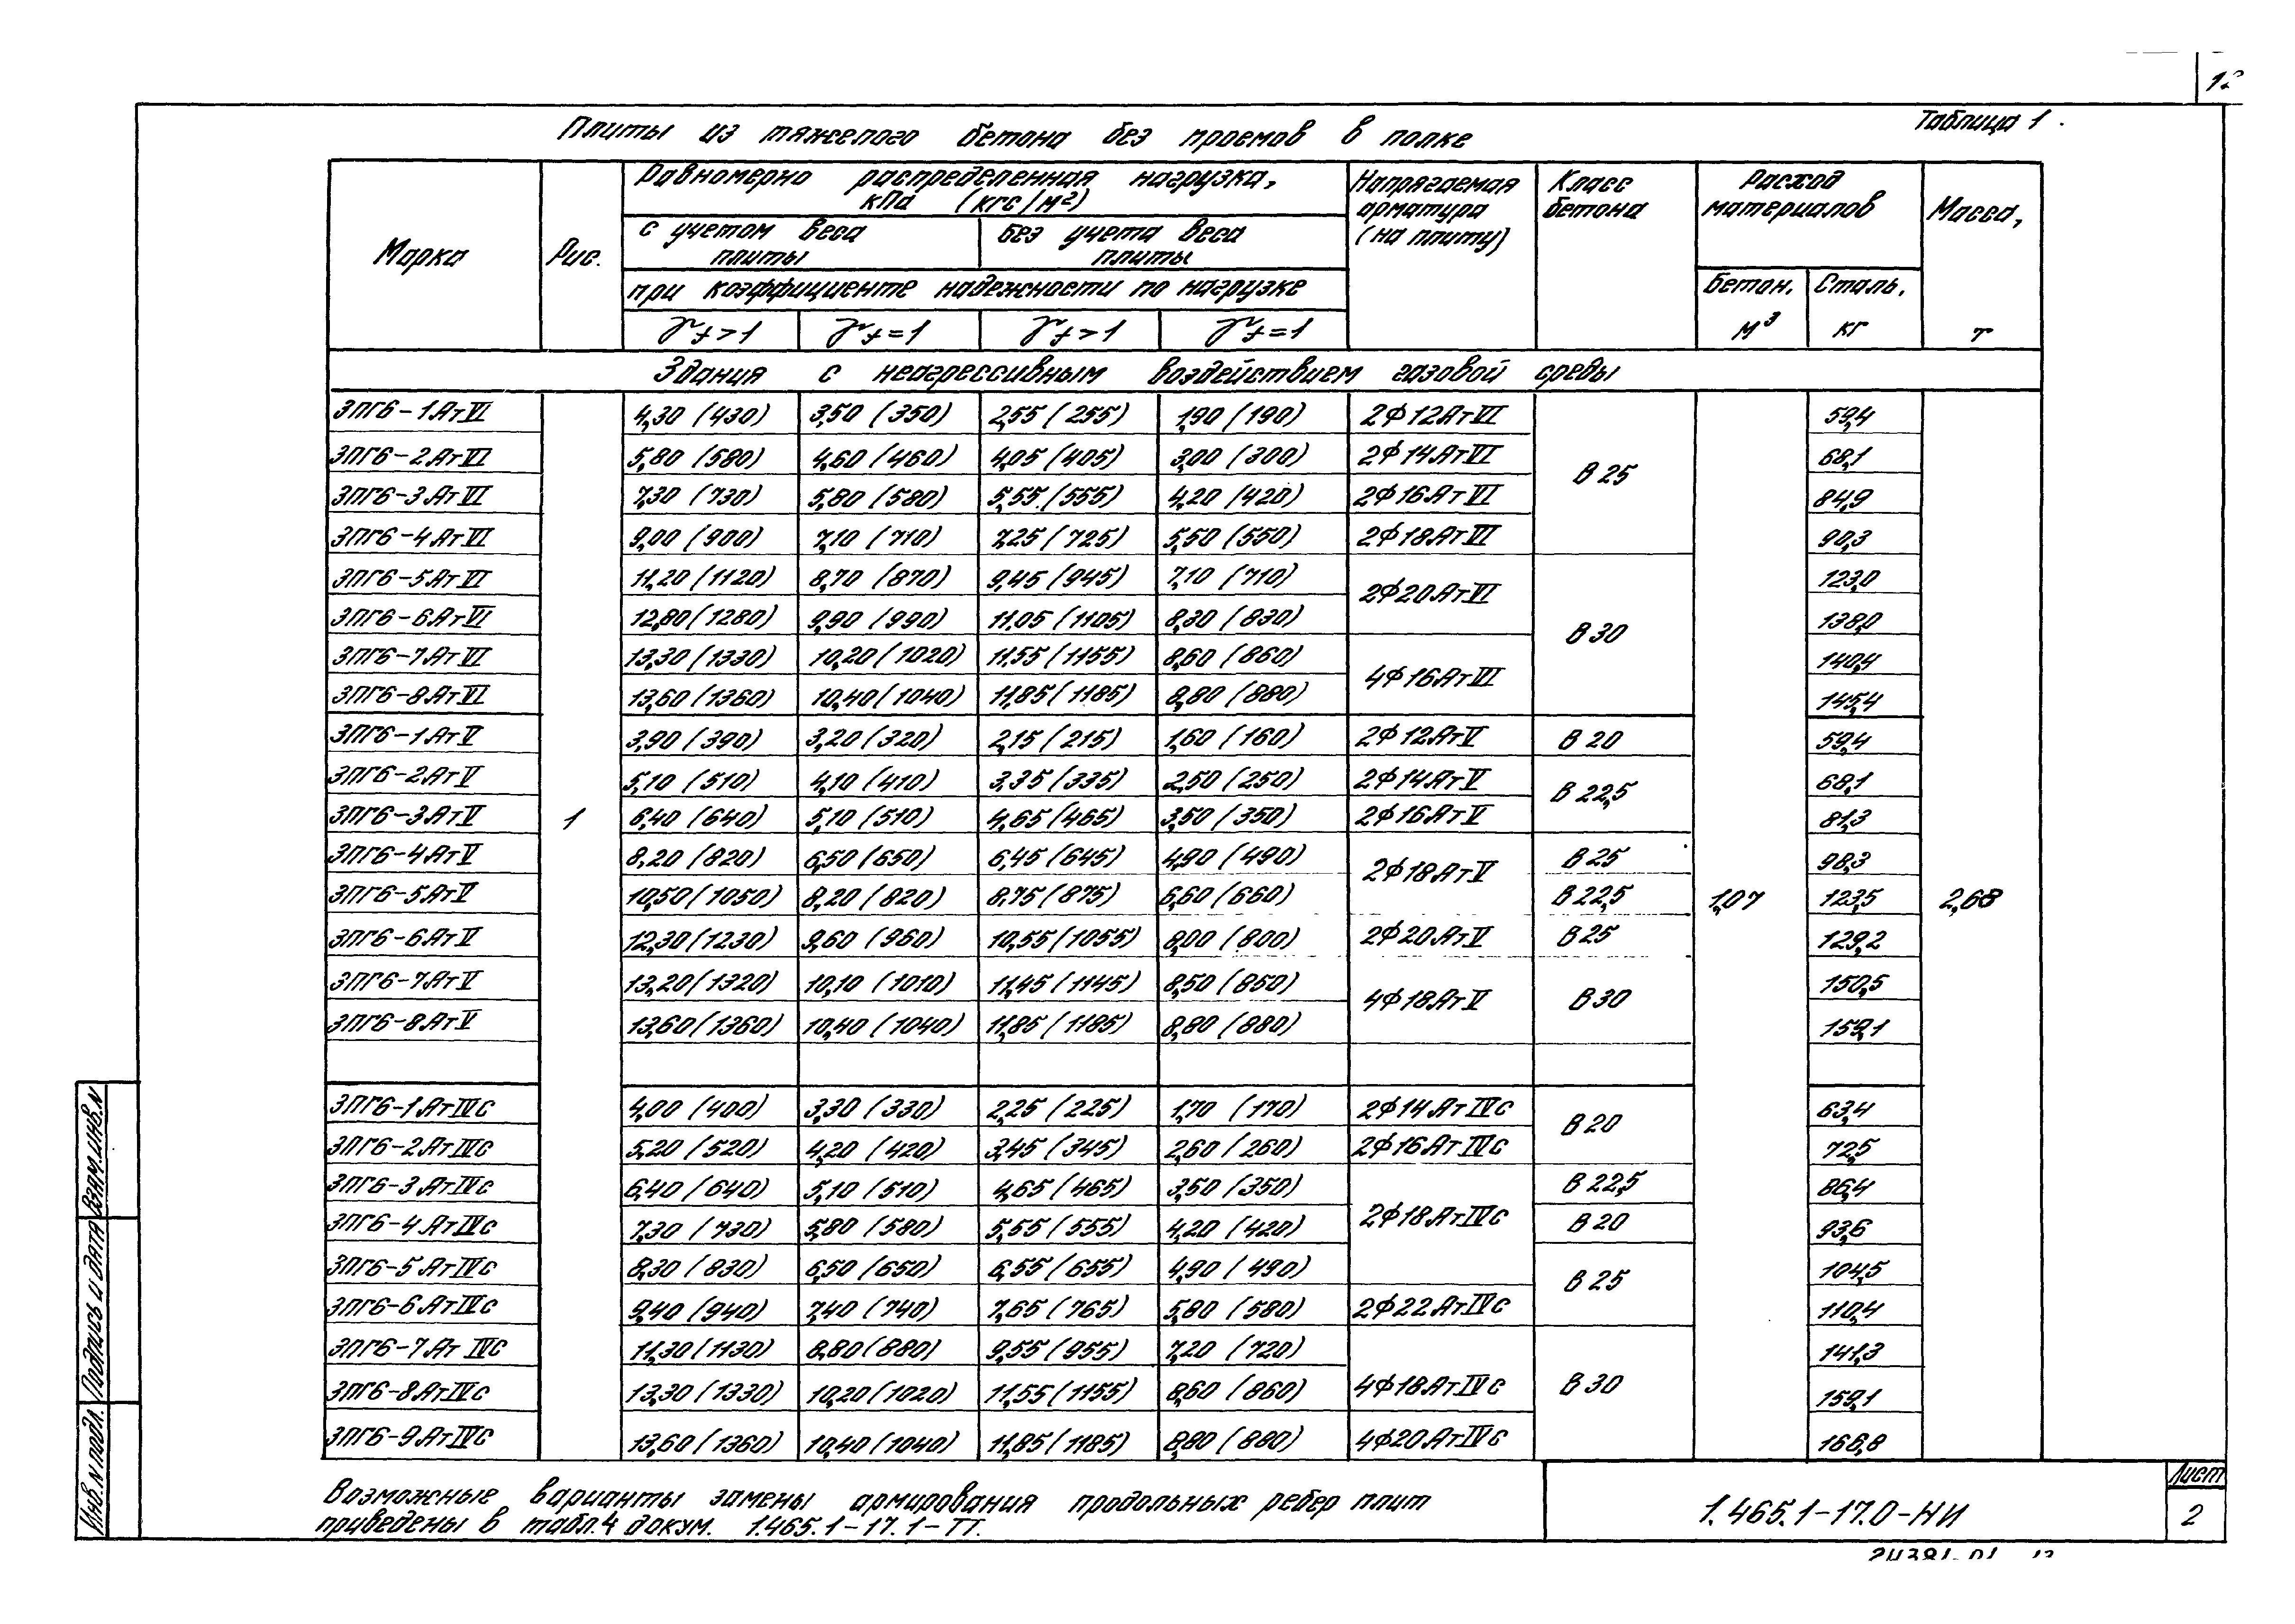 Таблица 1.
Плиты из тяжелого бетона без проемов в полке
Марка
Рис.
Равномерно распределенная нагрузка,
кПа (кгс/м²)
с учетом веса
плиты
без учета веса
плиты
при коэффициенте надежности по нагрузке
γf>1 γf=1 γf>1 γf=1
Напрягаемая
арматура
(на плиту)
Класс
бетона
Расход
материалов
Бетон, Сталь,
м³ кг
Масса,
т
Здания с неагрессивным воздействием газовой среды
3ПГ6-1АтVI 4,30 (430) 3,50 (350) 2,55 (255) 1,90 (190) 2Ф12АтVI 59,4
3ПГ6-2АтVI 5,80 (580) 4,60 (460) 4,05 (405) 3,00 (300) 2Ф14АтVI 68,1
В 25
3ПГ6-3АтVI 7,30 (730) 5,80 (580) 5,55 (555) 4,20 (420) 2Ф16АтVI 84,9
3ПГ6-4АтVI 9,00 (900) 7,10 (710) 7,25 (725) 5,50 (550) 2Ф18АтVI 90,3
3ПГ6-5АтVI 11,20 (1120) 8,70 (870) 9,45 (945) 7,10 (710) 123,0
2Ф20АтVI
3ПГ6-6АтVI 12,80 (1280) 9,90 (990) 11,05 (1105) 8,30 (830) 138,0
В 30
3ПГ6-7АтVI 13,30 (1330) 10,20 (1020) 11,55 (1155) 8,60 (860) 140,4
4Ф16АтVI
3ПГ6-8АтVI 13,60 (1360) 10,40 (1040) 11,85 (1185) 8,80 (880) 145,4
3ПГ6-1АтV 3,90 (390) 3,20 (320) 2,15 (215) 1,60 (160) 2Ф12АтV В 20 59,4
3ПГ6-2АтV 5,10 (510) 4,10 (410) 3,35 (335) 2,50 (250) 2Ф14АтV 68,1
В 22,5
3ПГ6-3АтV 1 6,40 (640) 5,10 (510) 4,65 (465) 3,50 (350) 2Ф16АтV 81,3
3ПГ6-4АтV 8,20 (820) 6,50 (650) 6,45 (645) 4,90 (490) В 25 98,3
2Ф18АтV
3ПГ6-5АтV 10,50 (1050) 8,20 (820) 8,75 (875) 6,60 (660) В 22,5 1,07 123,5 2,68
3ПГ6-6АтV 12,30 (1230) 9,60 (960) 10,55 (1055) 8,00 (800) 2Ф20АтV В 25 129,2
3ПГ6-7АтV 13,20 (1320) 10,10 (1010) 11,45 (1145) 8,50 (850) 150,5
4Ф18АтV В 30
3ПГ6-8АтV 13,60 (1360) 10,40 (1040) 11,85 (1185) 8,80 (880) 159,1
3ПГ6-1АтIVс 4,00 (400) 3,30 (330) 2,25 (225) 1,70 (170) 2Ф14АтIVс 63,4
В 20
3ПГ6-2АтIVс 5,20 (520) 4,20 (420) 3,45 (345) 2,60 (260) 2Ф16АтIVс 72,5
3ПГ6-3АтIVс 6,40 (640) 5,10 (510) 4,65 (465) 3,50 (350) В 22,5 86,4
2Ф18АтIVс
3ПГ6-4АтIVс 7,30 (730) 5,80 (580) 5,55 (555) 4,20 (420) В 20 93,6
3ПГ6-5АтIVс 8,30 (830) 6,50 (650) 6,55 (655) 4,90 (490) 104,5
В 25
3ПГ6-6АтIVс 9,40 (940) 7,40 (740) 7,65 (765) 5,80 (580) 2Ф22АтIVс 110,4
3ПГ6-7АтIVс 11,30 (1130) 8,80 (880) 9,55 (955) 7,20 (720) 141,3
3ПГ6-8АтIVс 13,30 (1330) 10,20 (1020) 11,55 (1155) 8,60 (860) 4Ф18АтIVс В 30 159,1
3ПГ6-9АтIVс 13,60 (1360) 10,40 (1040) 11,85 (1185) 8,80 (880) 4Ф20АтIVс 166,8
Возможные варианты замены армирования продольных ребер плит
приведены в табл.4 докум. 1.465.1-17.1-ТТ.
1.465.1-17.0-НИ
Лист
2
Взам.инв.N
Подпись и дата
Инв.N подл.